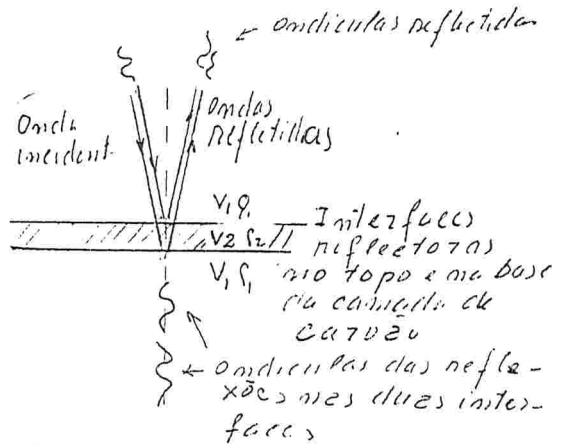 ondículas reflectidas
Onda
incident.
ondas
refletidas
V₁ ρ₁
V₂ ρ₂
V₁ ρ₁
Interfaces
reflectoras
no topo e na base
da camada de
carvão
ondiculas das refle-
xões nas duas inter-
faces